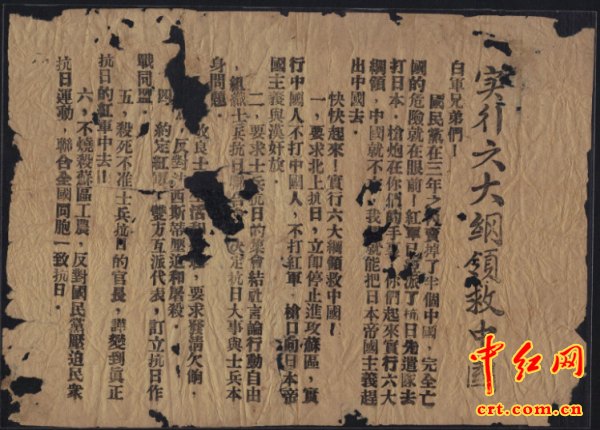 实行六大綱領救中國
白軍兄弟們！
國民黨在三年之賣掉了半個中國，完全亡
國的危險就在眼前！紅軍已派了抗日先遣隊去
打日本，槍炮在你們的手裏，你們起來實行六大
綱領，中國就不，我們就能把日本帝國主義趕
出中國去。
快快起來！實行六大綱領救中國！
一，要求北上抗日，立即停止進攻蘇區，實
行中國人不打中國人，不打紅軍，槍口向日本帝
國主義與漢奸放。
二，要求士兵抗日的集會結社言論行動自由
，組織士兵抗日決定抗日大事與士兵本
身問題。
改良士生活，要求發清欠餉，
反對西斯蒂壓迫和屠殺。
四，約定紅軍雙方互派代表，訂立抗日作
戰同盟。
五，殺死不准士兵抗日的官長，譁變到真正
抗日的紅軍中去！
六，不燒殺蘇區工農，反對國民黨壓迫民衆
抗日運動，聯合全國同胞一致抗日。
中红网
crt.com.cn